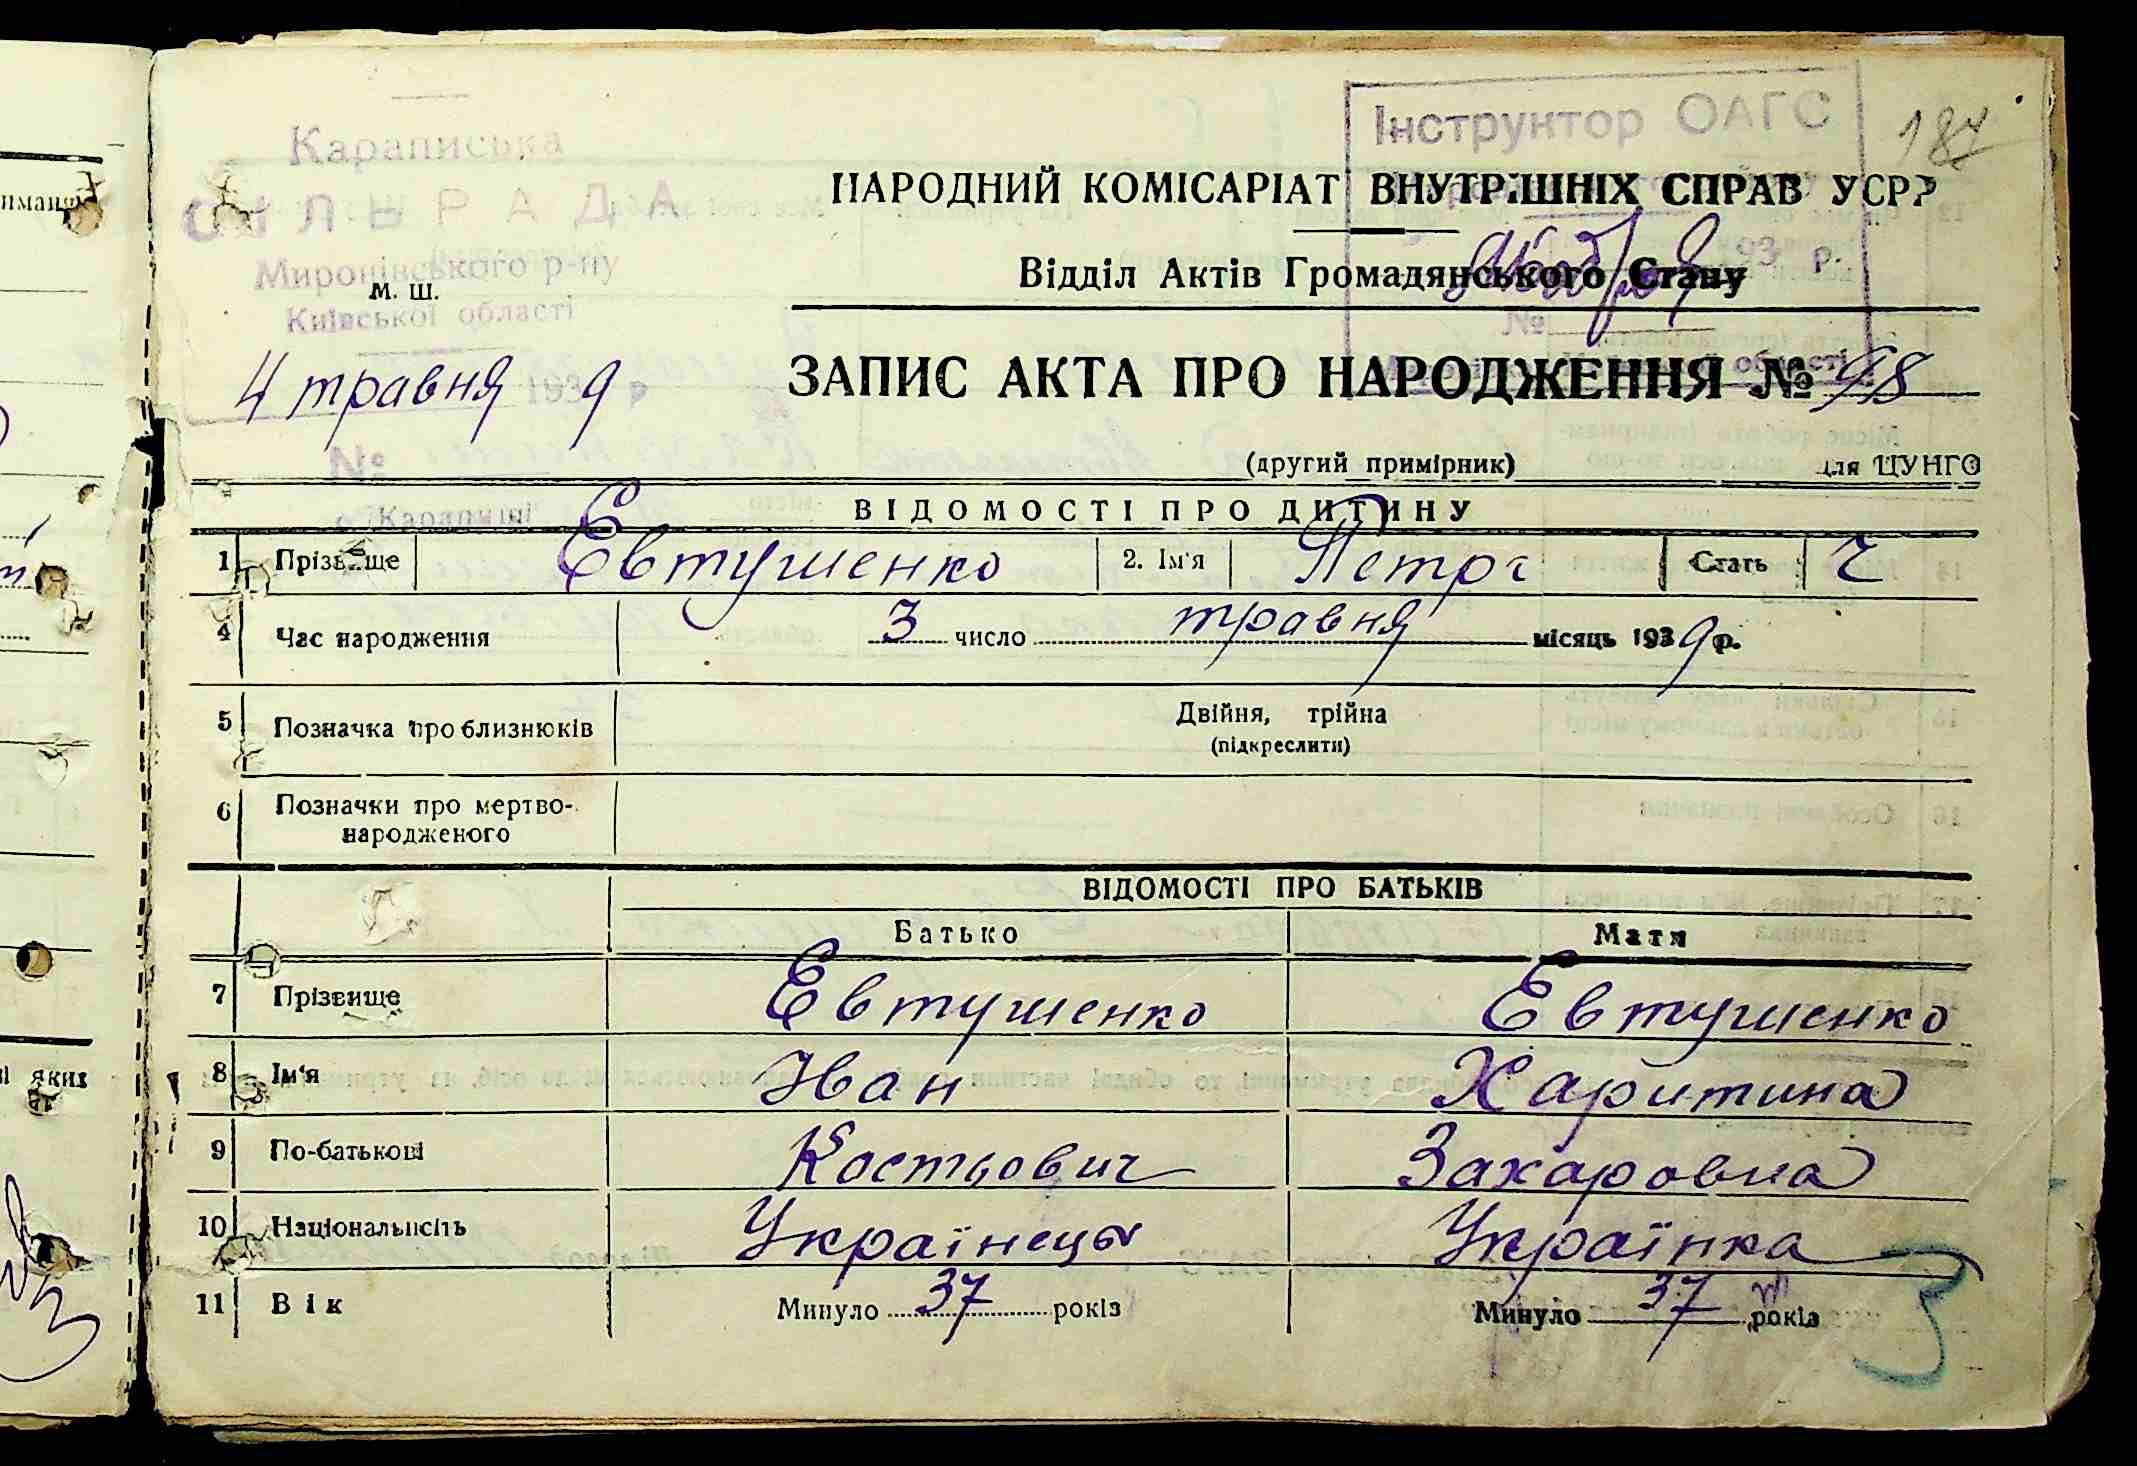 Караписька
СІЛЬРАДА
Миронівського р-ну
Київської області
М. Ш.
4 травня 1939 р
№
с. Карапиші
Інструктор ОАГС
187
НАРОДНИЙ КОМІСАРІАТ ВНУТРІШНІХ СПРАВ УСРР
193 р.
Відділ Актів Громадянського Стану
№
області
ЗАПИС АКТА ПРО НАРОДЖЕННЯ № 98
(другий примірник) для ЦУНГО
ВІДОМОСТІ ПРО ДИТИНУ
1 Прізвище Евтушенко 2. Ім'я Петро Стать Ч
4 Час народження 3 число травня місяць 1939 р.
5 Позначка про близнюків Двійня, трійна
(підкреслити)
6 Позначки про мертво-
народженого
ВІДОМОСТІ ПРО БАТЬКІВ
Батько Мати
7 Прізвище Евтушенко Евтушенко
8 Ім'я Іван Харитина
9 По-батькові Костьович Захаровна
10 Національність Українець Українка
11 Вік Минуло 37 років Минуло 37 років
3
иманн
і яких